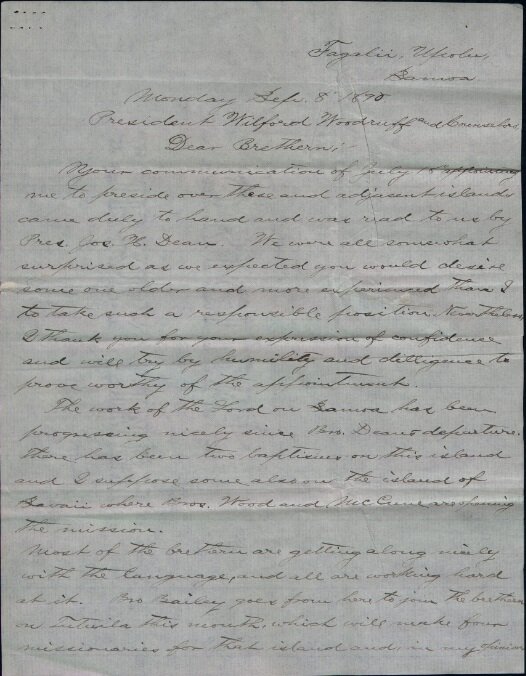 Fagalii, Upolu,
Samoa
Monday Sep. 8" 1890
President Wilford Woodruff and Counselors
Dear Brethern;-
Your communication of July 18 appointing
me to preside over these and adjacent islands
came duly to hand and was read to us by
Pres. Jos. H. Dean. We were all somewhat
surprised as we expected you would desire
some one older and more experienced than I
to take such a responsible position. Nevertheless
I thank you for your expression of confidence
and will try by humility and dilligence to
prove worthy of the appointment.
The work of the Lord on Samoa has been
progressing nicely since Bro. Dean's departure.
There has been two baptisms on this island
and I suppose some also on the island of
Savaii where Bros. Wood and McCune are opening
the mission.
Most of the brethern are getting along nicely
with the language, and all are working hard
at it. Bro Bailey goes from here to join the brethern
on Tutuila this month, which will make four
missionaries for that island and, in my opinion